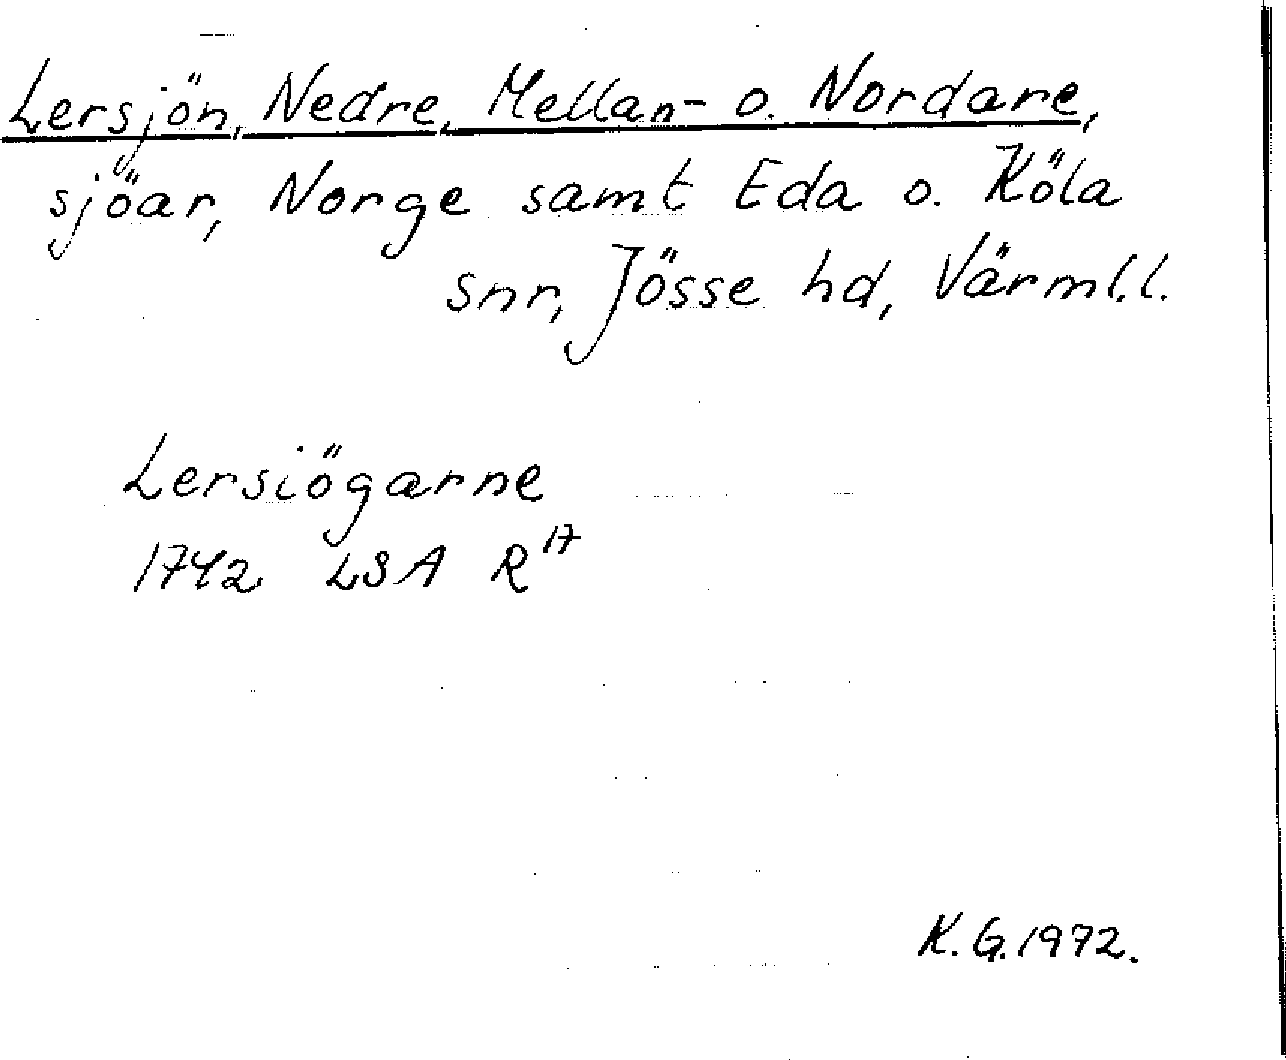 Lersjön, Nedre, Mellan- o. Nordare,
sjöar, Norge samt Eda o. Köla
snr, Jösse hd, Värml.l.
Lersiögarne
1742 LSA R17
K.G.1972.